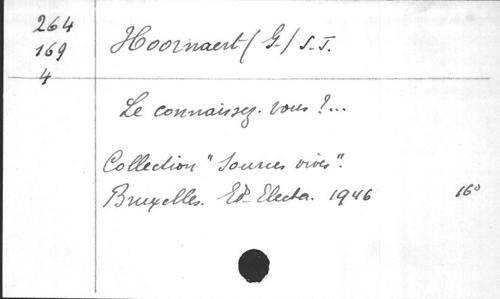 264
169
4
Hoornaert (G.) S.J.
Le connaissez-vous ?...
Collection "Sources vives".
Bruxelles. Ed. Electa. 1946 16°